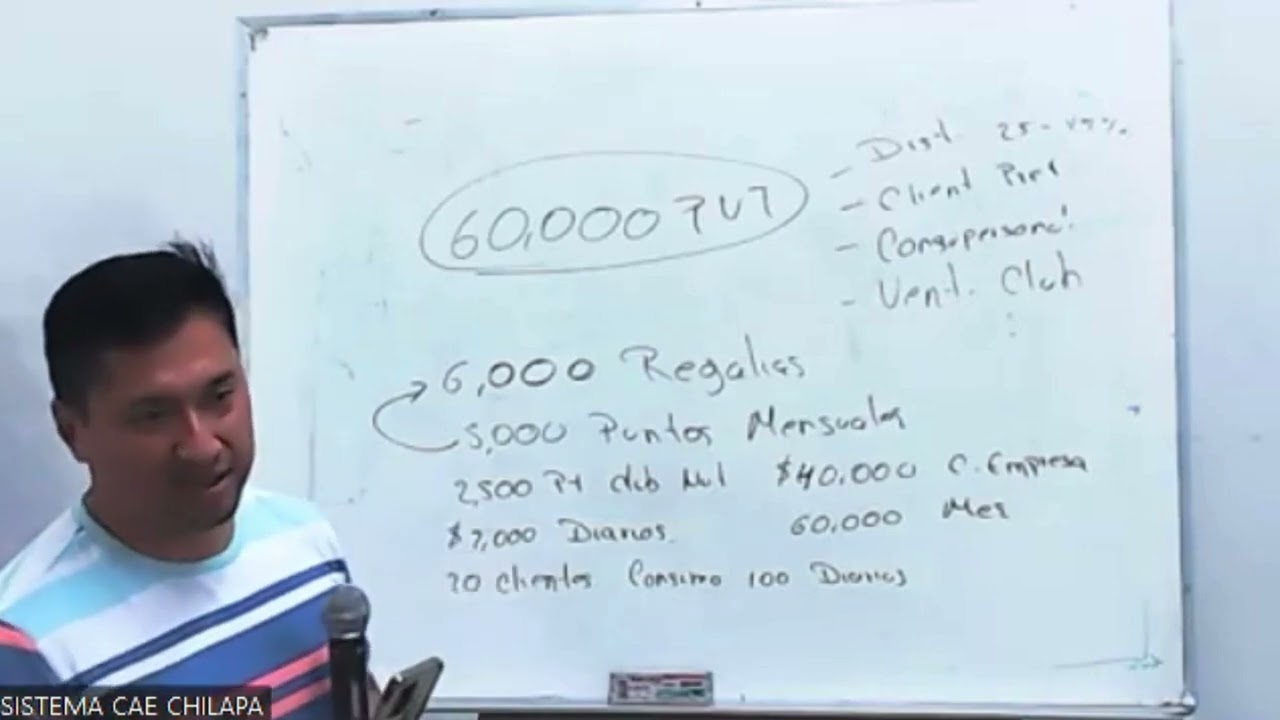 60,000 PVT
- Dist. 25-42%
- Client Pref
- Cons. personal
- Vent. Club
6,000 Regalias
5,000 Puntos Mensuales
2,500 Pt club Nut $40,000 C. Empresa
$2,000 Diarios. 60,000 Mes
20 clientes Consumo 100 Diarios
SISTEMA CAE CHILAPA